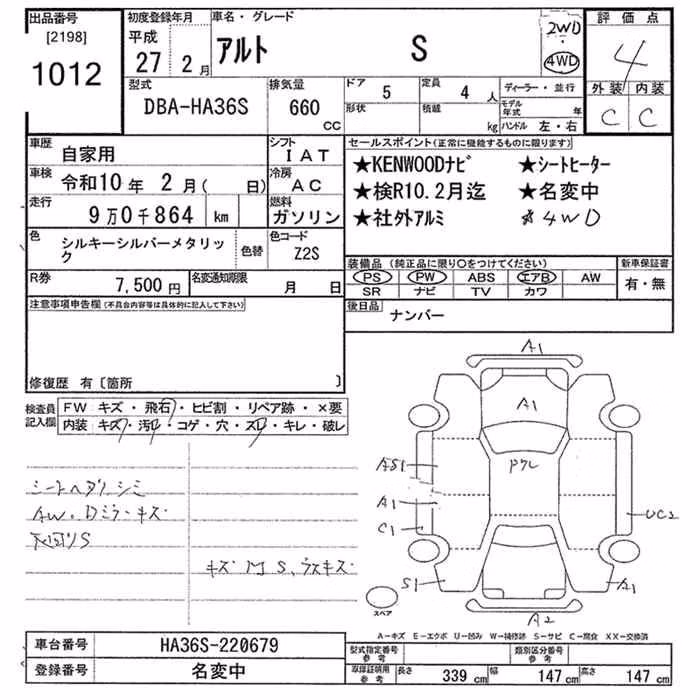 出品番号 初度登録年月 車名・グレード 評価点
[2198] 平成 2WD
1012 27 2月 アルト S 4WD 4
型式 排気量 ドア 5 定員 4 人 ディーラー・並行 外装 内装
DBA-HA36S 660 cc 形状 積載 kg モデル年式 年 C C
ハンドル 左・右
車歴 自家用 シフト IAT セールスポイント(正常に機能するものに限ります)
車検 令和10年 2月( 日) 冷房 AC ★KENWOODナビ ★シートヒーター
★検R10.2月迄 ★名変中
走行 9万0千864 km 燃料 ガソリン ★社外アルミ 4WD
色 シルキーシルバーメタリック 色替 色コード Z2S
装備品(純正品に限り○をつけてください) 新車保証書
PS PW ABS エアB AW 有・無
SR ナビ TV カワ
R券 7,500円 名変通知期限 月 日
注意事項申告欄(不具合内容等は具体的に記入して下さい) 後日品 ナンバー
修復歴 有〔箇所 〕
検査員記入欄 FW キズ・飛石・ヒビ割・リペア跡・×要
内装 キズ・汚・コゲ・穴・スレ・キレ・破レ
A1
A1
アクレ
AS1
A1
C1
UC2
S1
A1
A2
シートヘタリ、シミ
AW、Dミラーキズ
下回りS
キズ S、ウスキズ
スペア
A-キズ E-エクボ U-凹み W-補修跡 S-サビ C-腐食 XX-交換済
車台番号 HA36S-220679 型式指定番号 参考 類別区分番号 参考
登録番号 名変中 車庫証明用 参考 長さ 339 cm 幅 147 cm 高さ 147 cm